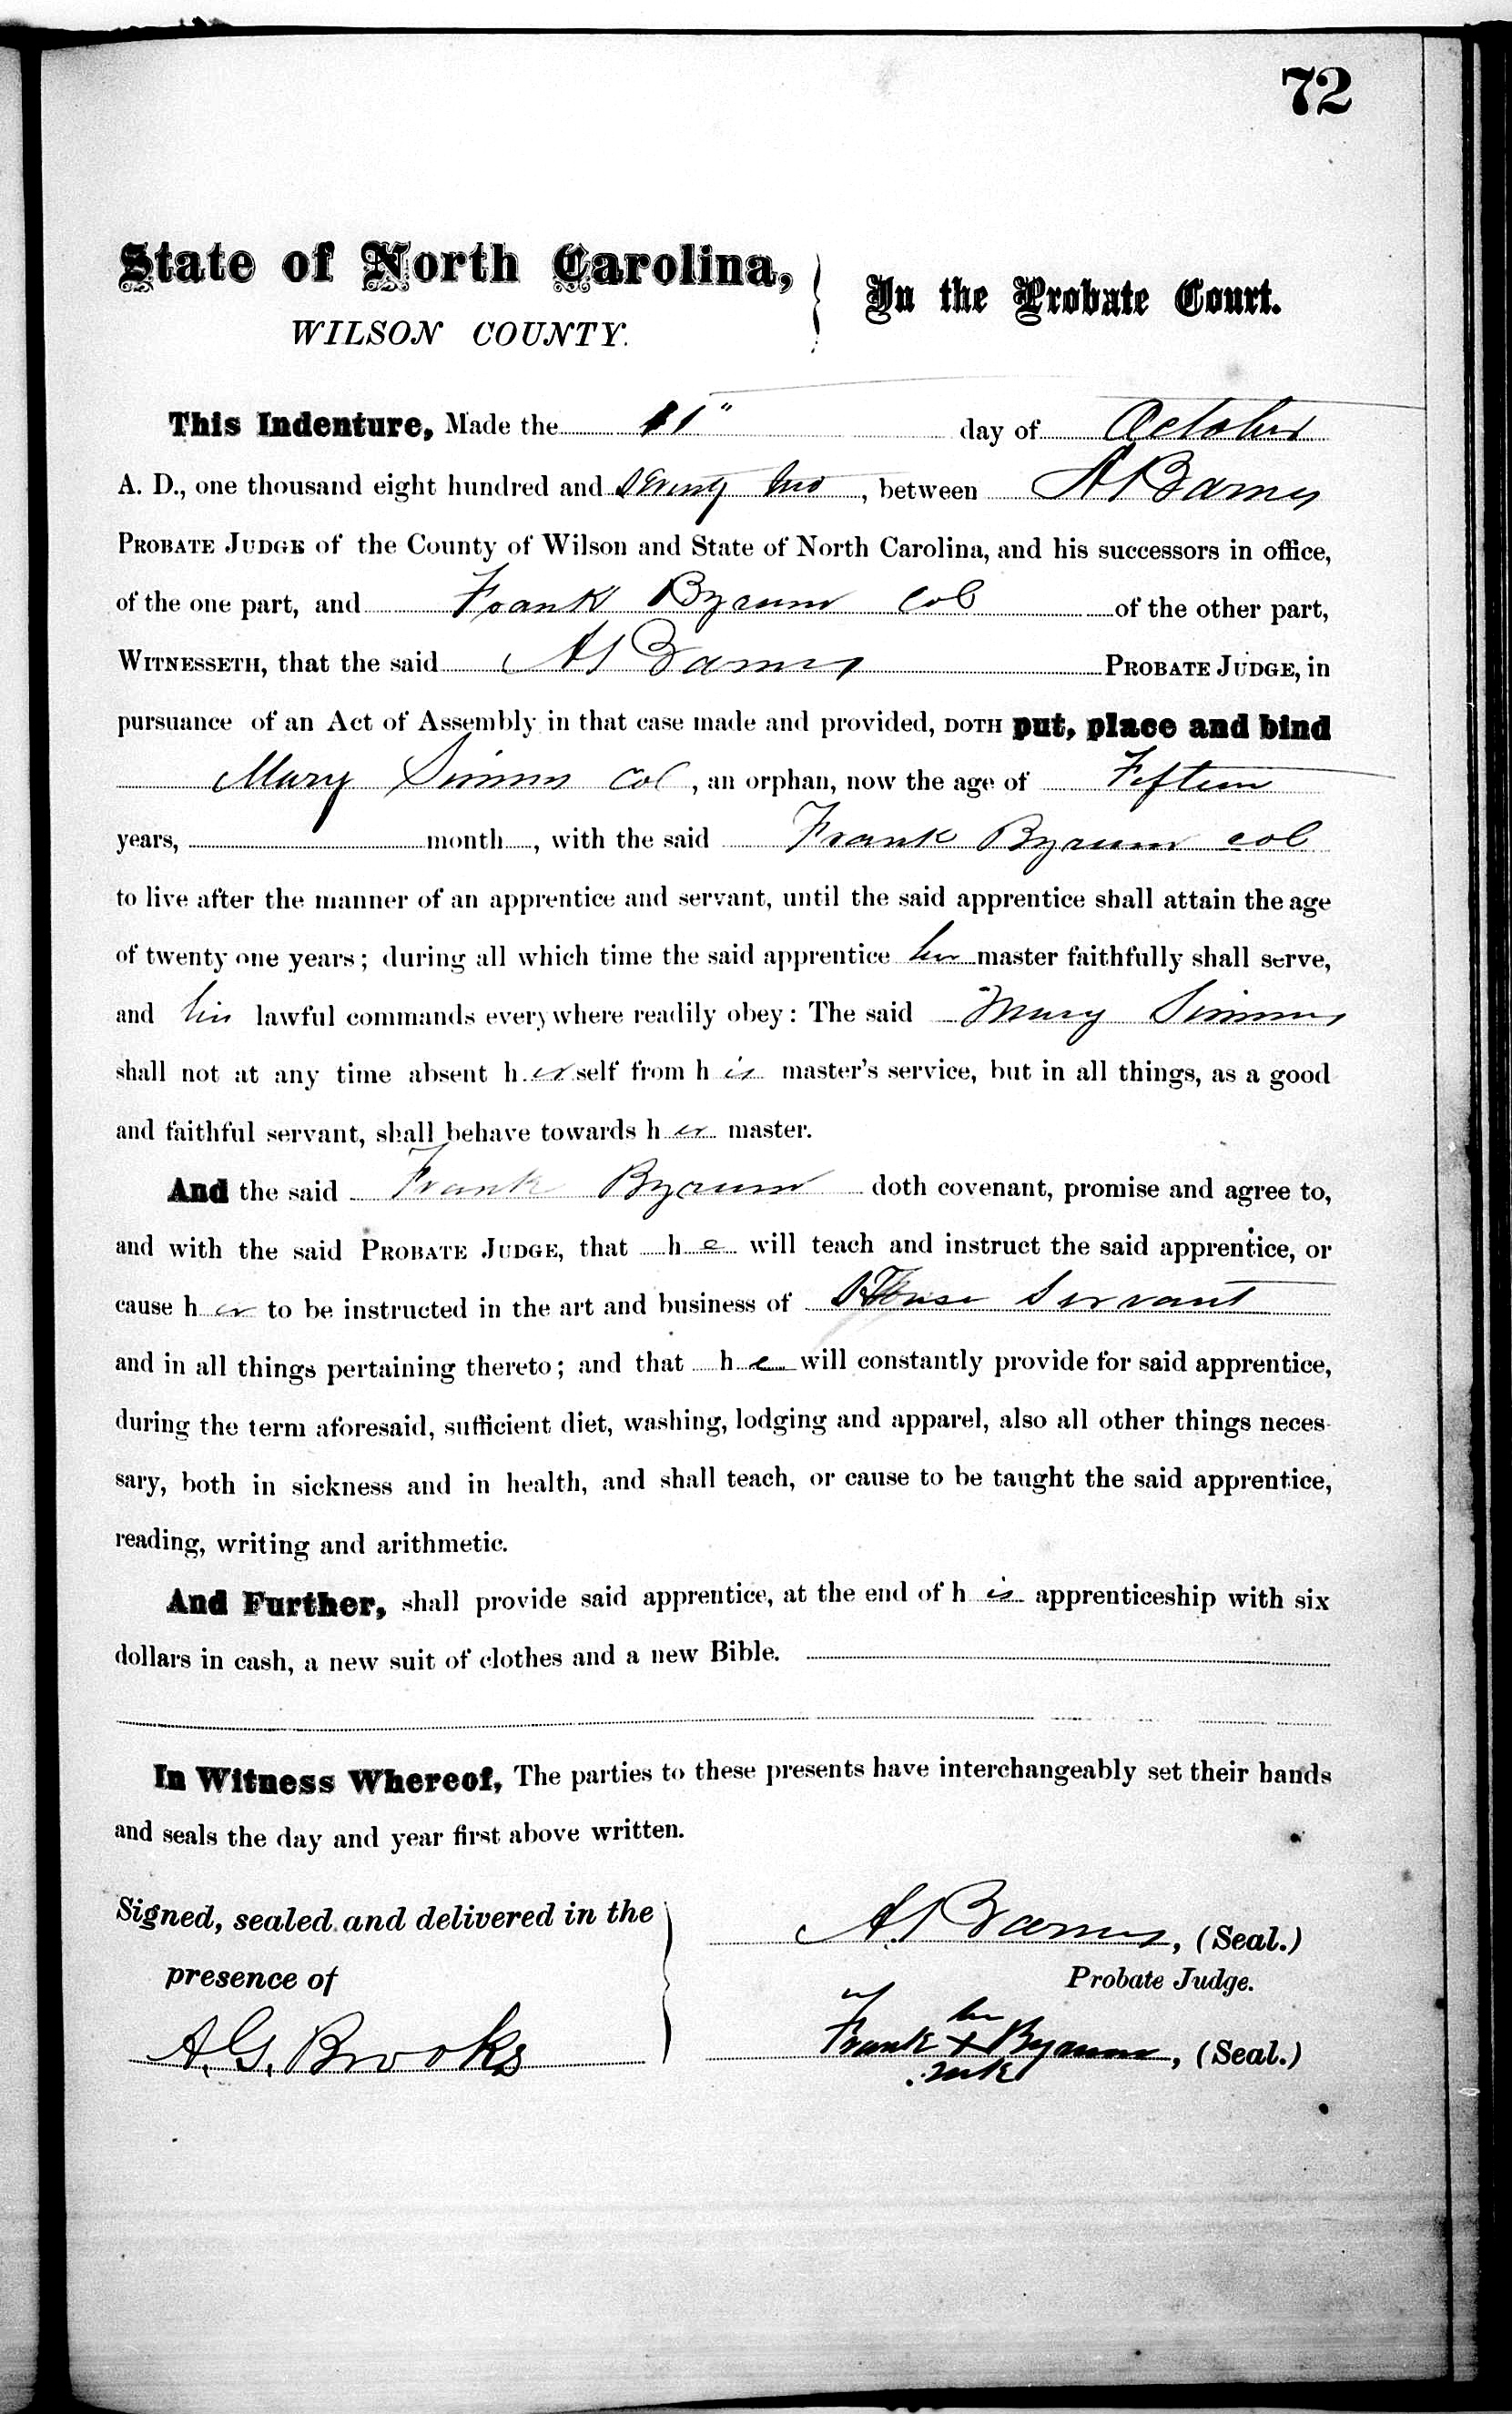 72
State of North Carolina, In the Probate Court.
WILSON COUNTY.
This Indenture, Made the 11" day of October
A. D., one thousand eight hundred and Seventy two, between A Barnes
PROBATE JUDGE of the County of Wilson and State of North Carolina, and his successors in office,
of the one part, and Frank Byrum Col of the other part,
WITNESSETH, that the said A Barnes PROBATE JUDGE, in
pursuance of an Act of Assembly in that case made and provided, DOTH put, place and bind
Mary Simms Col, an orphan, now the age of Fifteen
years, month, with the said Frank Byrum col
to live after the manner of an apprentice and servant, until the said apprentice shall attain the age
of twenty one years; during all which time the said apprentice her master faithfully shall serve,
and his lawful commands everywhere readily obey: The said Mary Simms
shall not at any time absent her self from his master's service, but in all things, as a good
and faithful servant, shall behave towards her master.
And the said Frank Byrum doth covenant, promise and agree to,
and with the said PROBATE JUDGE, that he will teach and instruct the said apprentice, or
cause her to be instructed in the art and business of House Servant
and in all things pertaining thereto; and that he will constantly provide for said apprentice,
during the term aforesaid, sufficient diet, washing, lodging and apparel, also all other things neces-
sary, both in sickness and in health, and shall teach, or cause to be taught the said apprentice,
reading, writing and arithmetic.
And Further, shall provide said apprentice, at the end of his apprenticeship with six
dollars in cash, a new suit of clothes and a new Bible.
In Witness Whereof, The parties to these presents have interchangeably set their hands
and seals the day and year first above written.
Signed, sealed and delivered in the
presence of
A. G. Brooks
A. Barnes, (Seal.)
Probate Judge.
his
Frank X Byrum, (Seal.)
mk